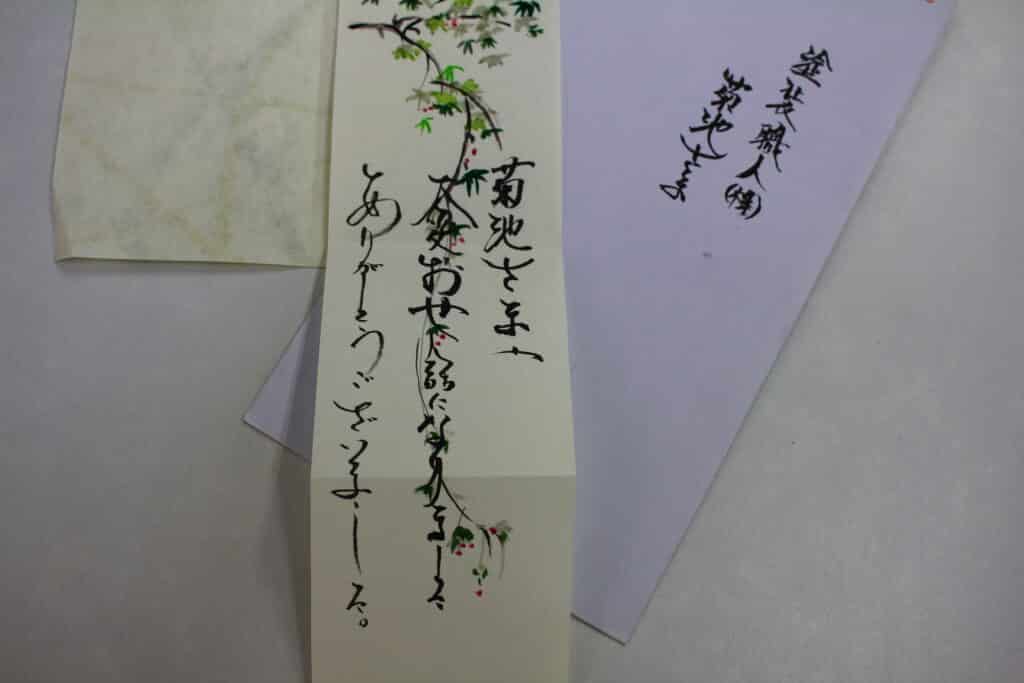 塗装職人(株)
菊池さま
菊池さまへ
大変お世話になりました
ありがとうございました。